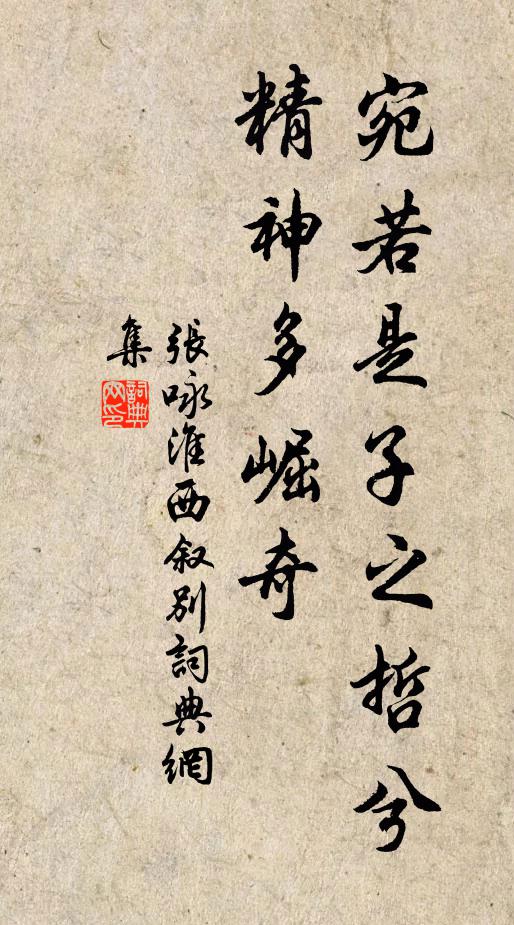 宛若是子之哲兮
精神多崛奇
張咏淮西叙别詞典網
集
詞典
网印